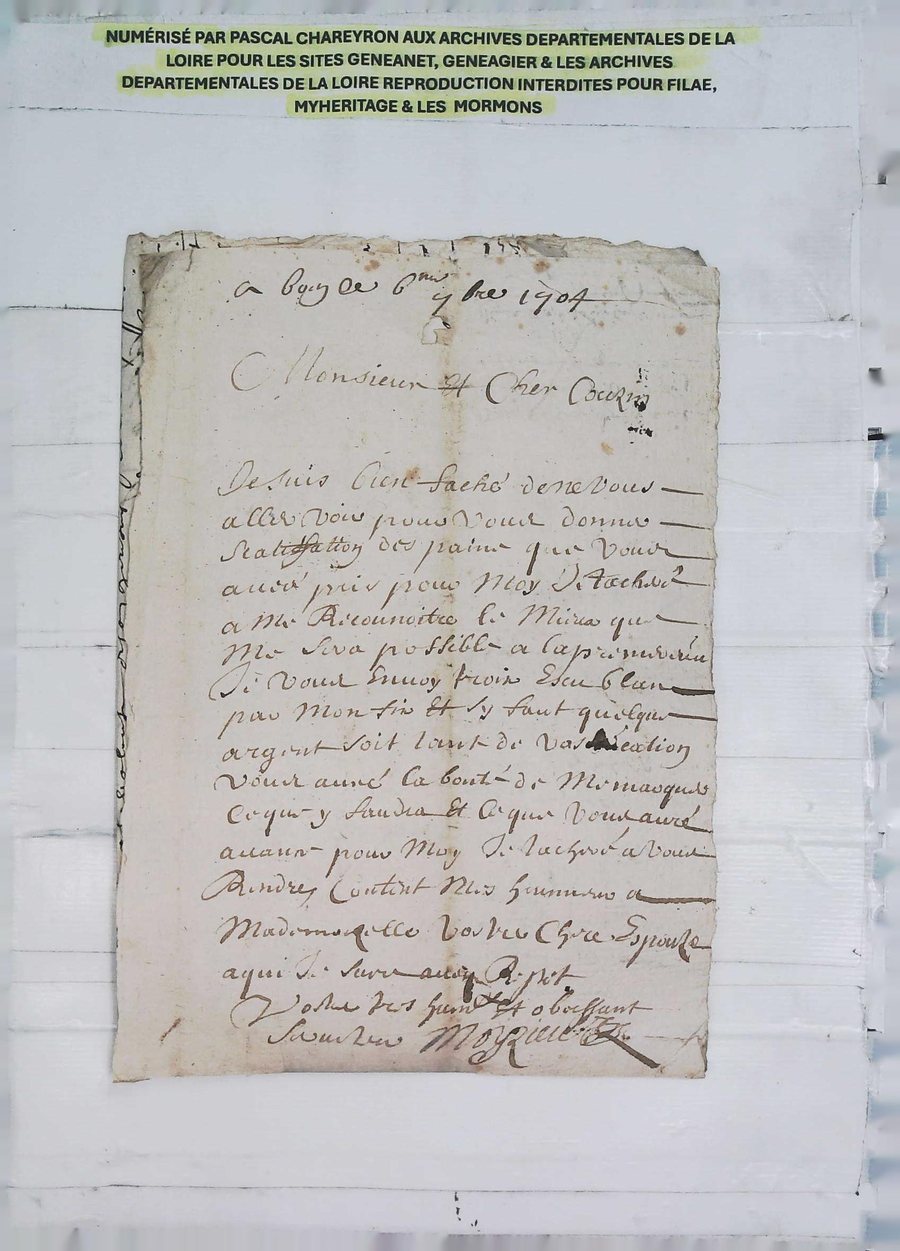 NUMÉRISÉ PAR PASCAL CHAREYRON AUX ARCHIVES DEPARTEMENTALES DE LA
LOIRE POUR LES SITES GENEANET, GENEAGIER & LES ARCHIVES
DEPARTEMENTALES DE LA LOIRE REPRODUCTION INTERDITES POUR FILAE,
MYHERITAGE & LES MORMONS
a ce 6me 7bre 1704
Monsieur Et Cher Couzin
Je suis bien faché de ne vous
aller voir pour vous donner
des paine que vous
avez pris pour Moy Je tacheré
a Me Reconnoitre le Mieux que
Me sera possible a la premiere veu
Je vous Envoy troix Escu blan
par Mon fix Et sy faut quelque
argent soit tant de vacation
vous auré la bonté de Me marquer
ce que y faudra Et ce que vous auré
avancé pour Moy Je tacheré a vous
Rendre Content Mes honneurs a
Mademoizelle vostre Chere Espouze
a qui Je suis avec Respet
Vostre tres humble Et obeissant
Serviteur